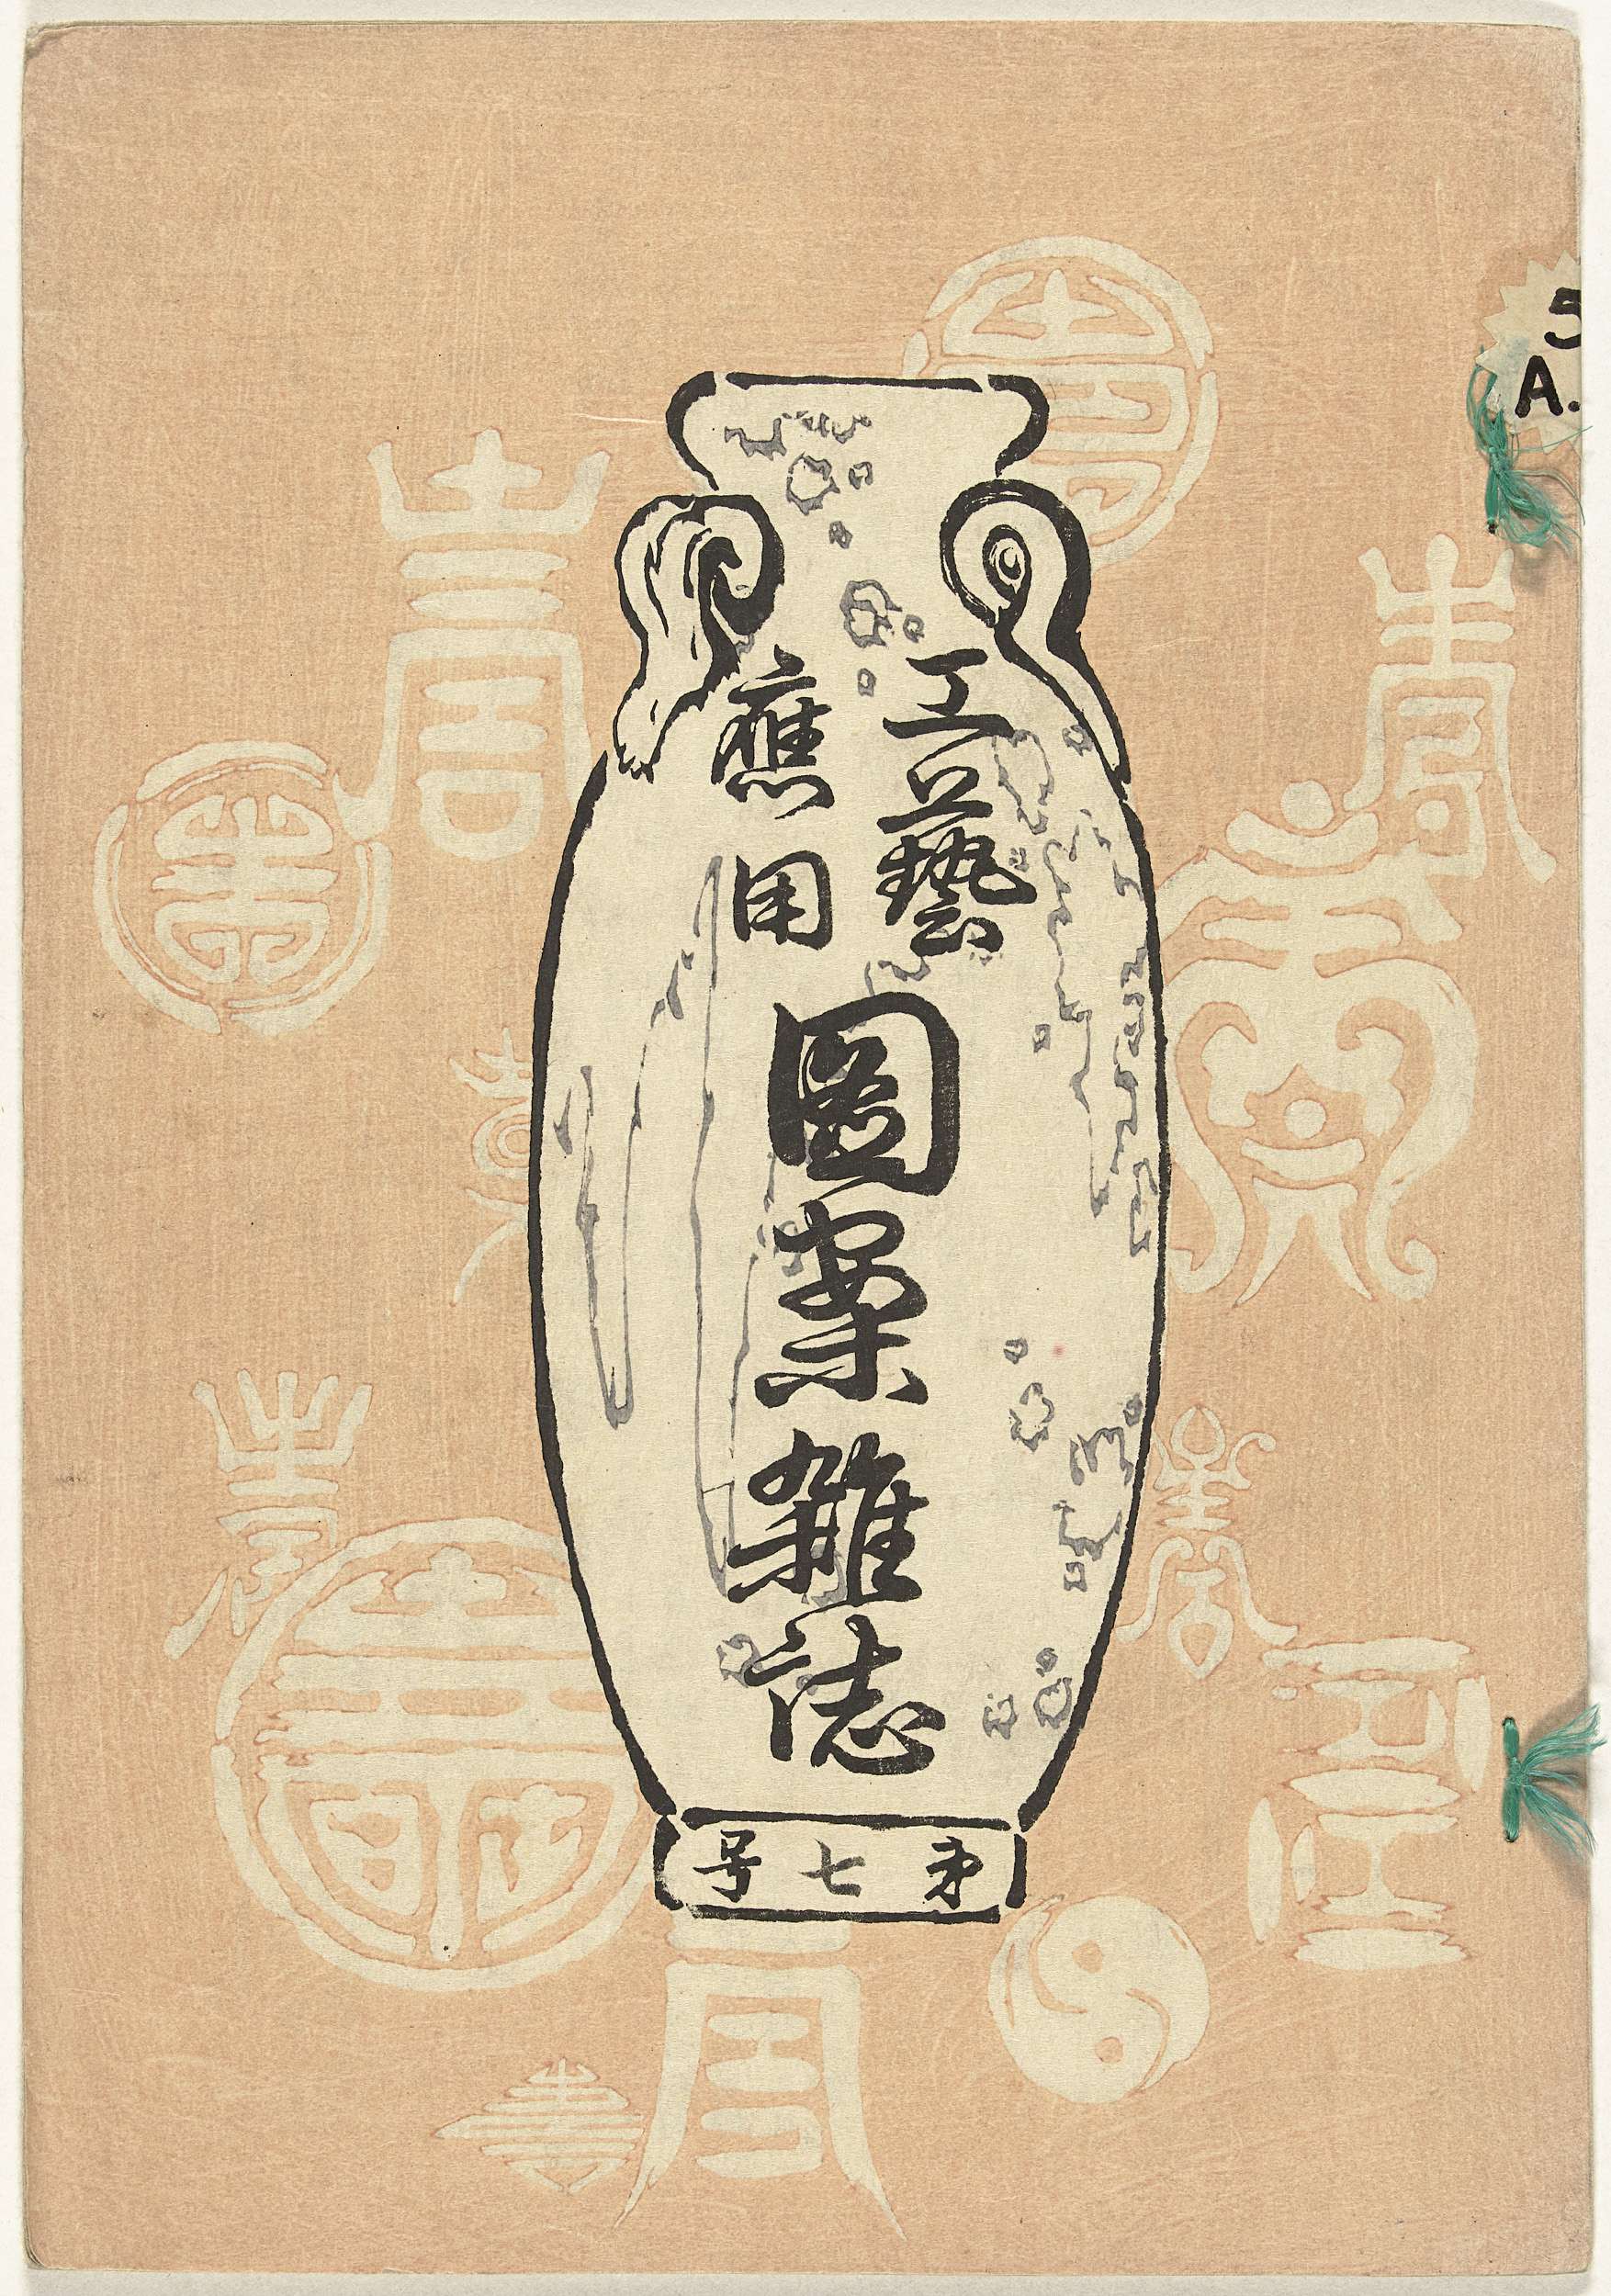 工藝
應用
圖案雜誌
第七号
5
A.